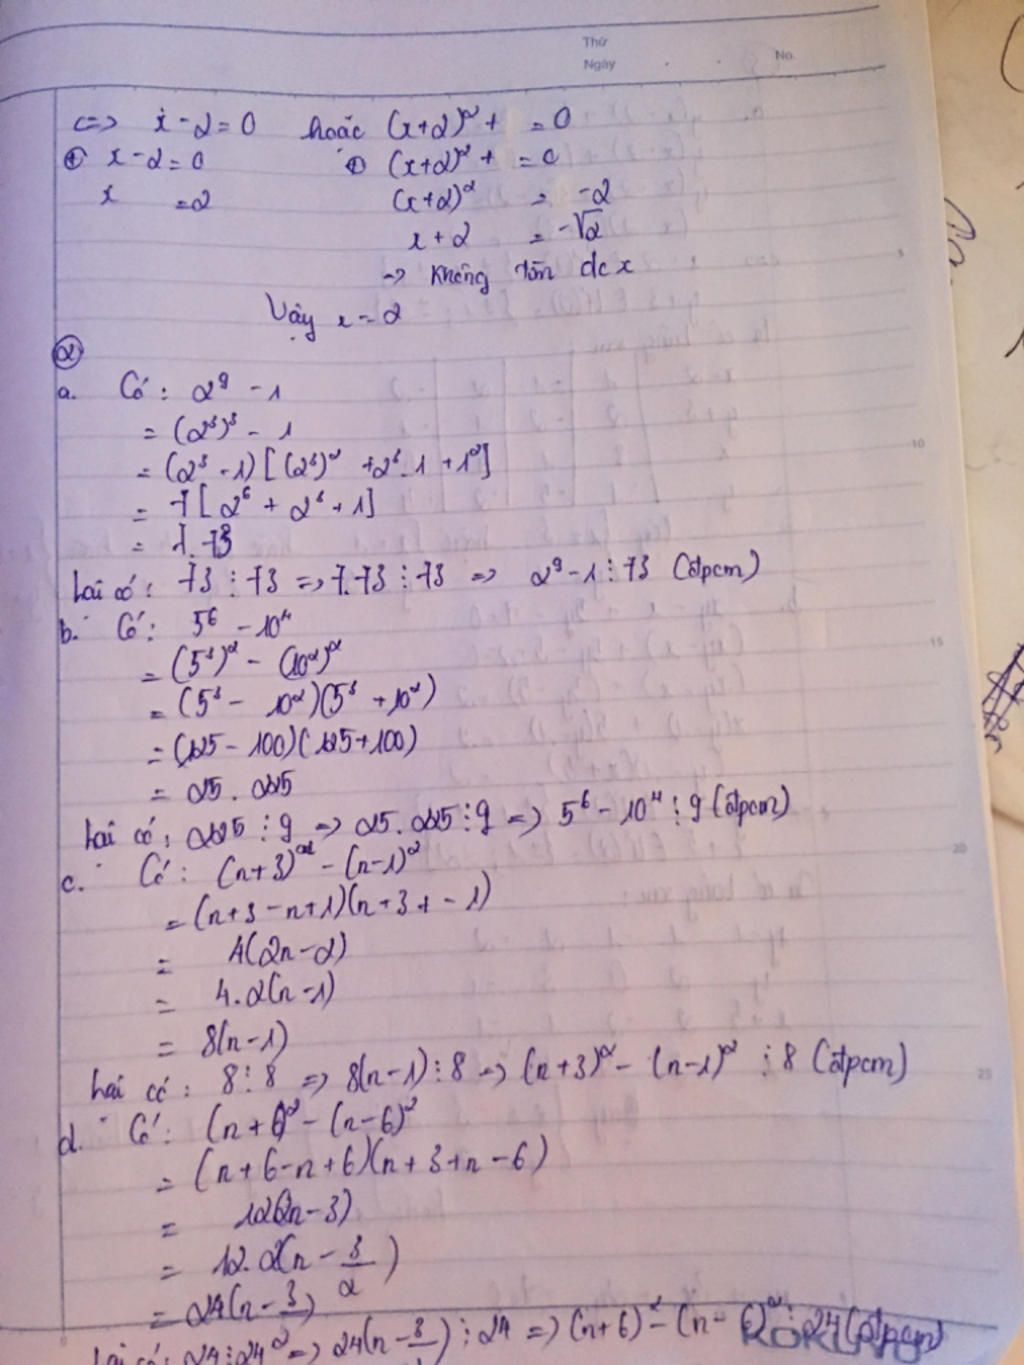 Thứ
Ngày No.
<=> x - 2 = 0 hoặc (x+2)² + = 0
⊕ x - 2 = 0 ⊕ (x+2)² + = 0
x = 2 (x+2)² = -2
x + 2 = -√2
-> Không tồn x
Vậy x = 2
②
a. Có: 2⁹ - 1
= (2³)³ - 1
= (2³ - 1) [(2³)² + 2³.1 + 1²]
= 7 [2⁶ + 2³ + 1]
= 7.73
Lại có: 73 ⋮ 73 => 7.73 ⋮ 73 => 2⁹ - 1 ⋮ 73 (đpcm)
b. Có: 5⁶ - 10⁴
= (5³)² - (10²)²
= (5³ - 10²)(5³ + 10²)
= (125 - 100)(125 + 100)
= 25 . 225
Lại có: 225 ⋮ 9 => 25.225 ⋮ 9 => 5⁶ - 10⁴ ⋮ 9 (đpcm)
c. Có: (n+3)² - (n-1)²
= (n+3-n+1)(n+3+ - 1)
= 4(2n-2)
= 4.2(n-1)
= 8(n-1)
Lại có: 8 ⋮ 8 => 8(n-1) ⋮ 8 => (n+3)² - (n-1)² ⋮ 8 (đpcm)
d. Có: (n+6)² - (n-6)²
= (n+6-n+6)(n+3+n-6)
= 12(2n-3)
= 12.2(n - 3/2)
= 24(n - 3/2)
Lại có: 24 ⋮ 24 => 24(n - 3/2) ⋮ 24 => (n+6)² - (n-6)² ⋮ 24 (đpcm)
KOKUYO